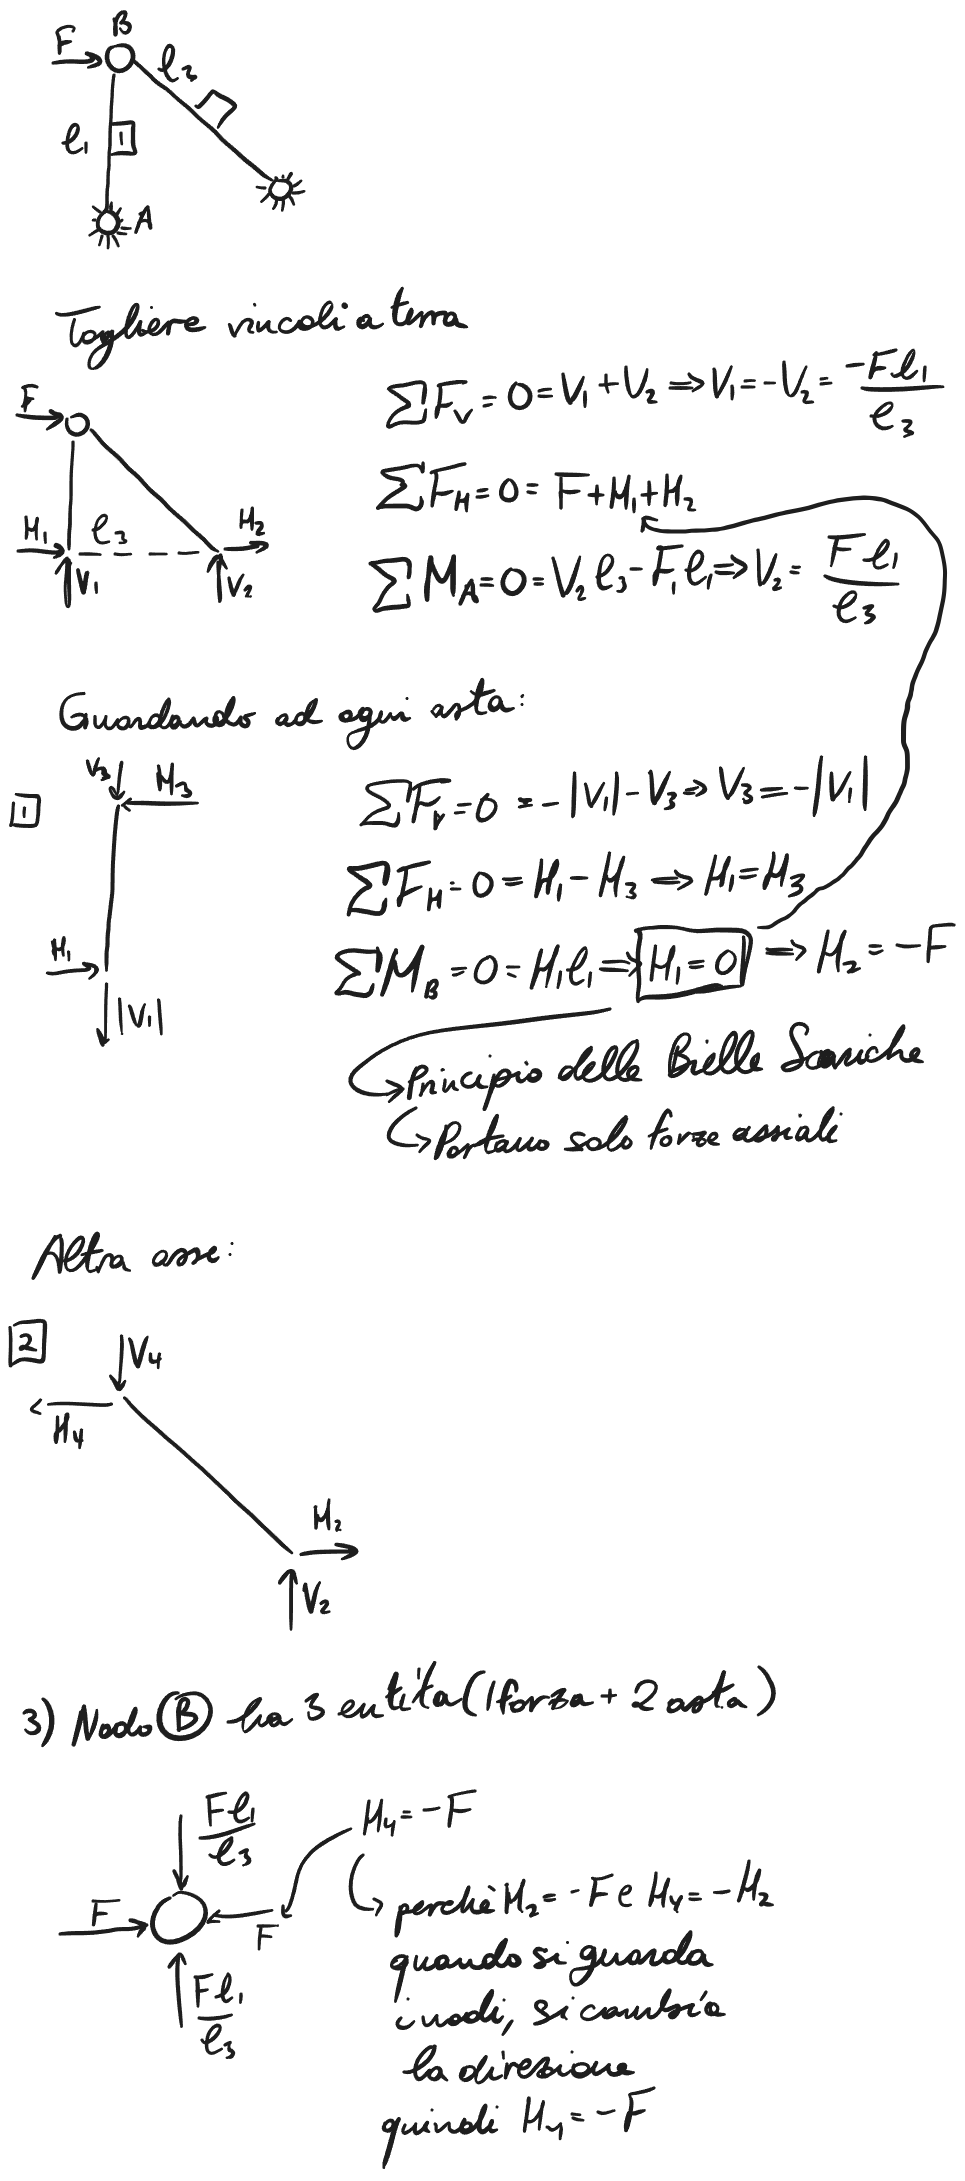 F B l₂
l₁ 1
A
Togliere vincoli a terra
F
H₁ l₃ H₂
V₁ V₂
∑Fᵥ = 0 = V₁ + V₂ ⇒ V₁ = -V₂ = -Fl₁/l₃
∑F_H = 0 = F + H₁ + H₂
∑M_A = 0 = V₂ l₃ - F₁ l₁ ⇒ V₂ = Fl₁/l₃
Guardando ad ogni asta:
1 V₃ H₃
H₁
|V₁|
∑Fᵥ = 0 = -|V₁| - V₃ ⇒ V₃ = -|V₁|
∑F_H = 0 = H₁ - H₃ ⇒ H₁ = H₃
∑M_B = 0 = H₁l₁ ⇒ H₁ = 0 ⇒ H₂ = -F
Principio delle Bielle Scariche
Portano solo forze assiali
Altra asse:
2 V₄
H₄
H₂
V₂
3) Nodo B ha 3 entità (1 forza + 2 asta)
Fl₁/l₃
F F
Fl₁/l₃
H₄ = -F
perchè H₂ = -F e H₄ = -H₂
quando si guarda
i nodi, si cambia
la direzione
quindi H₄ = -F